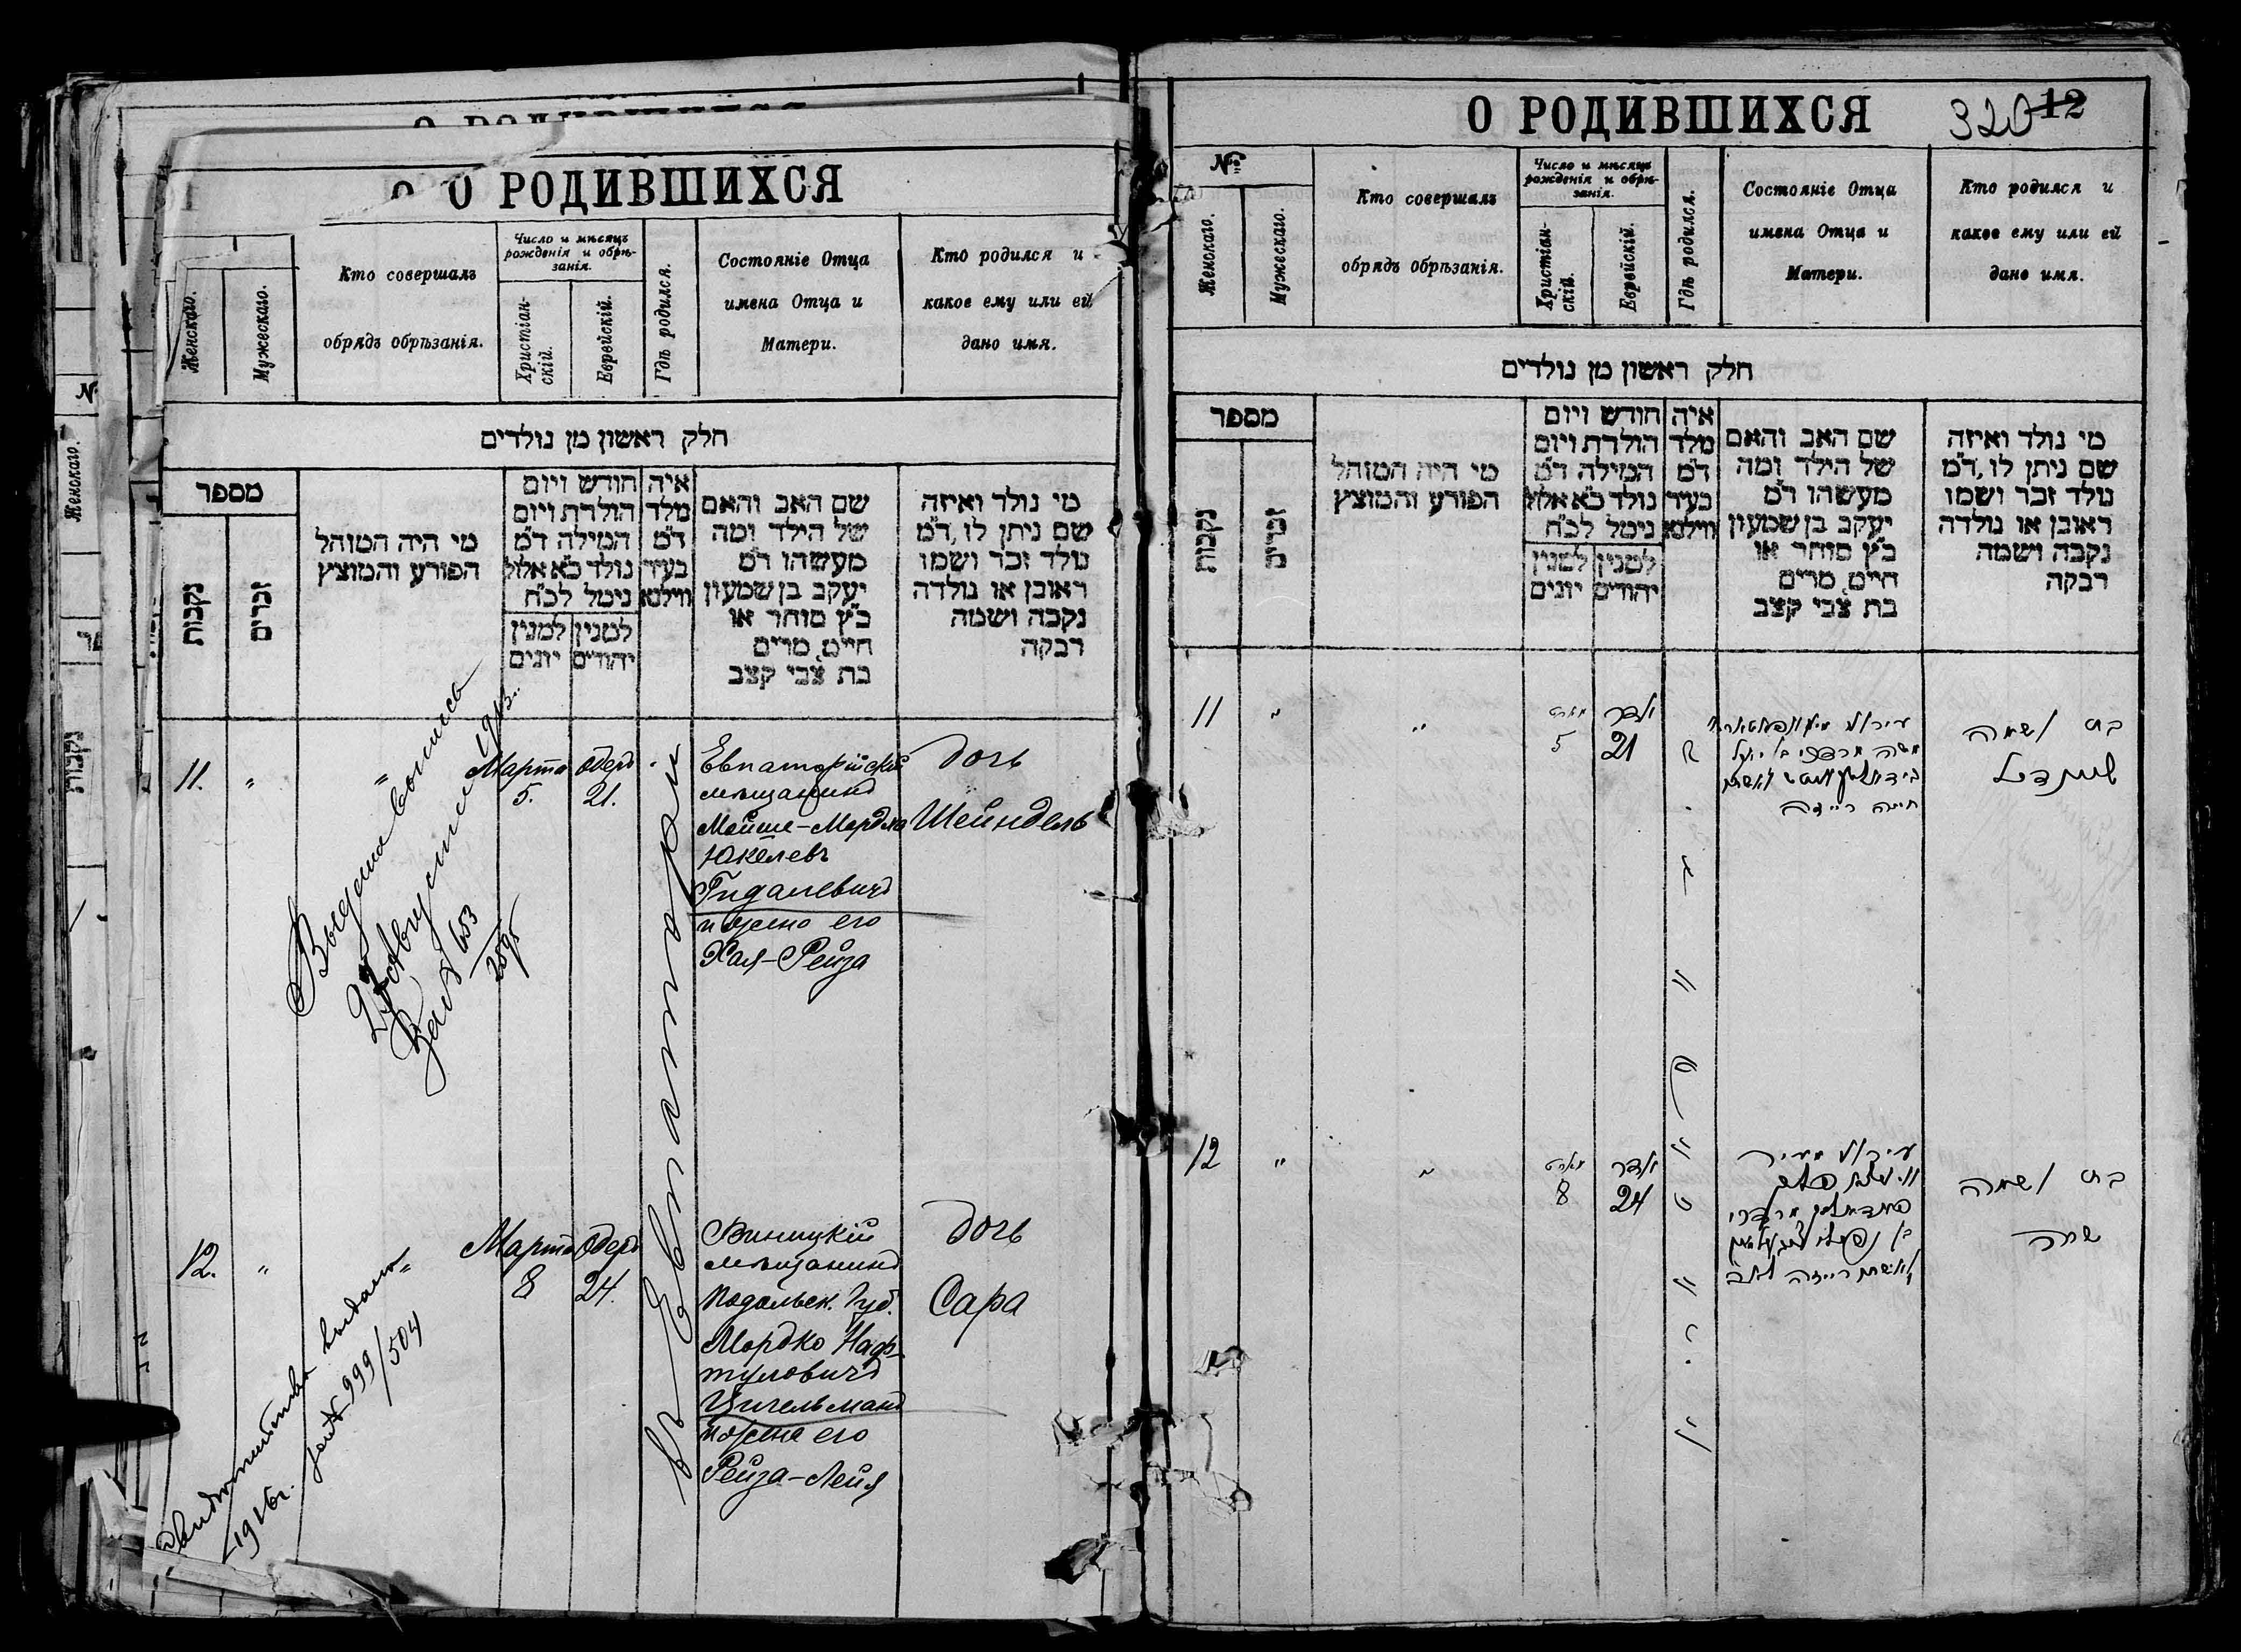 О РОДИВШИХСЯ
Женскаго.
Мужескаго.
Кто совершалъ
обрядъ обрѣзанія.
Число и мѣсяцъ
рожденія и обрѣ-
занія.
Христіан-
скій.
Еврейскій.
Гдѣ родился.
Состояніе Отца
имена Отца и
Матери.
Кто родился и
какое ему или ей
дано имя.
חלק ראשון מן נולדים
מספר
נקבות
זכרים
מי היה המוהל
הפורע והמוצץ
חודש ויום
הולדת ויום
המילה ד״מ
נולד כ״א אלול
נימל לכ״ח
למנין
יונים
למנין
יהודים
איה
מלד
ד״מ
בעיר
ווילנא
שם האב והאם
של הילד ומה
מעשהו ד״מ
יעקב בן שמעון
כ״ץ סוחר או
חיים, מרים
בת צבי קצב
מי נולד ואיזה
שם ניתן לו, ד״מ
נולד זכר ושמו
ראובן או נולדה
נקבה ושמה
רבקה
11. " "
Марта
5.
Одеръ
21.
Евпаторійскій
мѣщанинъ
Мойше-Мордко
Юкелевъ
Гидалевичъ
и жена его
Хая-Рейза
дочь
Шейндель
Выдана выпись
Августа 1913 г.
653
в Евпаторіи
12. " "
Марта
8
Одеръ
24.
Виницкій
мѣщанинъ
Подольск. Губ.
Мордко Наф-
туловичъ
Цигельманъ
и жена его
Рейза-Лейя
дочь
Сара
1916 г. за № 999/504
О РОДИВШИХСЯ
320 12
№
Женскаго.
Мужескаго.
Кто совершалъ
обрядъ обрѣзанія.
Число и мѣсяцъ
рожденія и обрѣ-
занія.
Христіан-
скій.
Еврейскій.
Гдѣ родился.
Состояніе Отца
имена Отца и
Матери.
Кто родился и
какое ему или ей
дано имя.
חלק ראשון מן נולדים
מספר
נקבות
זכרים
מי היה המוהל
הפורע והמוצץ
חודש ויום
הולדת ויום
המילה ד״מ
נולד כ״א אלול
נימל לכ״ח
למנין
יונים
למנין
יהודים
איה
מלד
ד״מ
בעיר
ווילנא
שם האב והאם
של הילד ומה
מעשהו ד״מ
יעקב בן שמעון
כ״ץ סוחר או
חיים, מרים
בת צבי קצב
מי נולד ואיזה
שם ניתן לו, ד״מ
נולד זכר ושמו
ראובן או נולדה
נקבה ושמה
רבקה
11 " "
מארט
5
אדר
21
משה מרדכי בן יוקל
חייה רייזה
בת ושמה
שיינדיל
12 " "
מארט
8
אדר
24
מרדכי
בן נפתלי
ואשתו רייזה לאה
בת ושמה
שרה
Женскаго.
נקבות